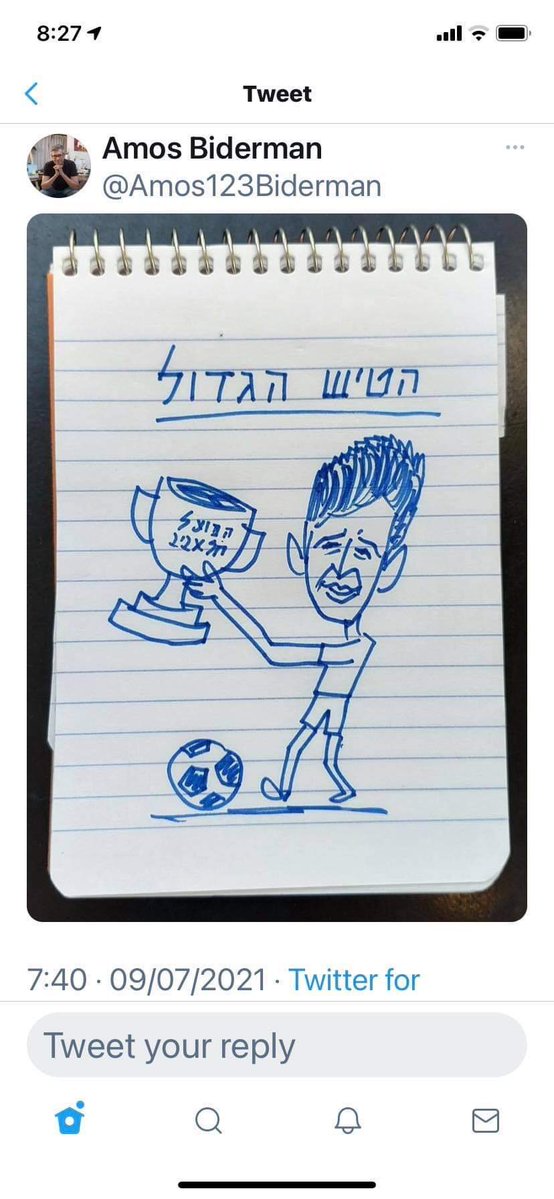 8:27
Tweet
Amos Biderman
@Amos123Biderman
הטיש הגדול
הפועל
תל אביב
7:40 · 09/07/2021 · Twitter for
Tweet your reply